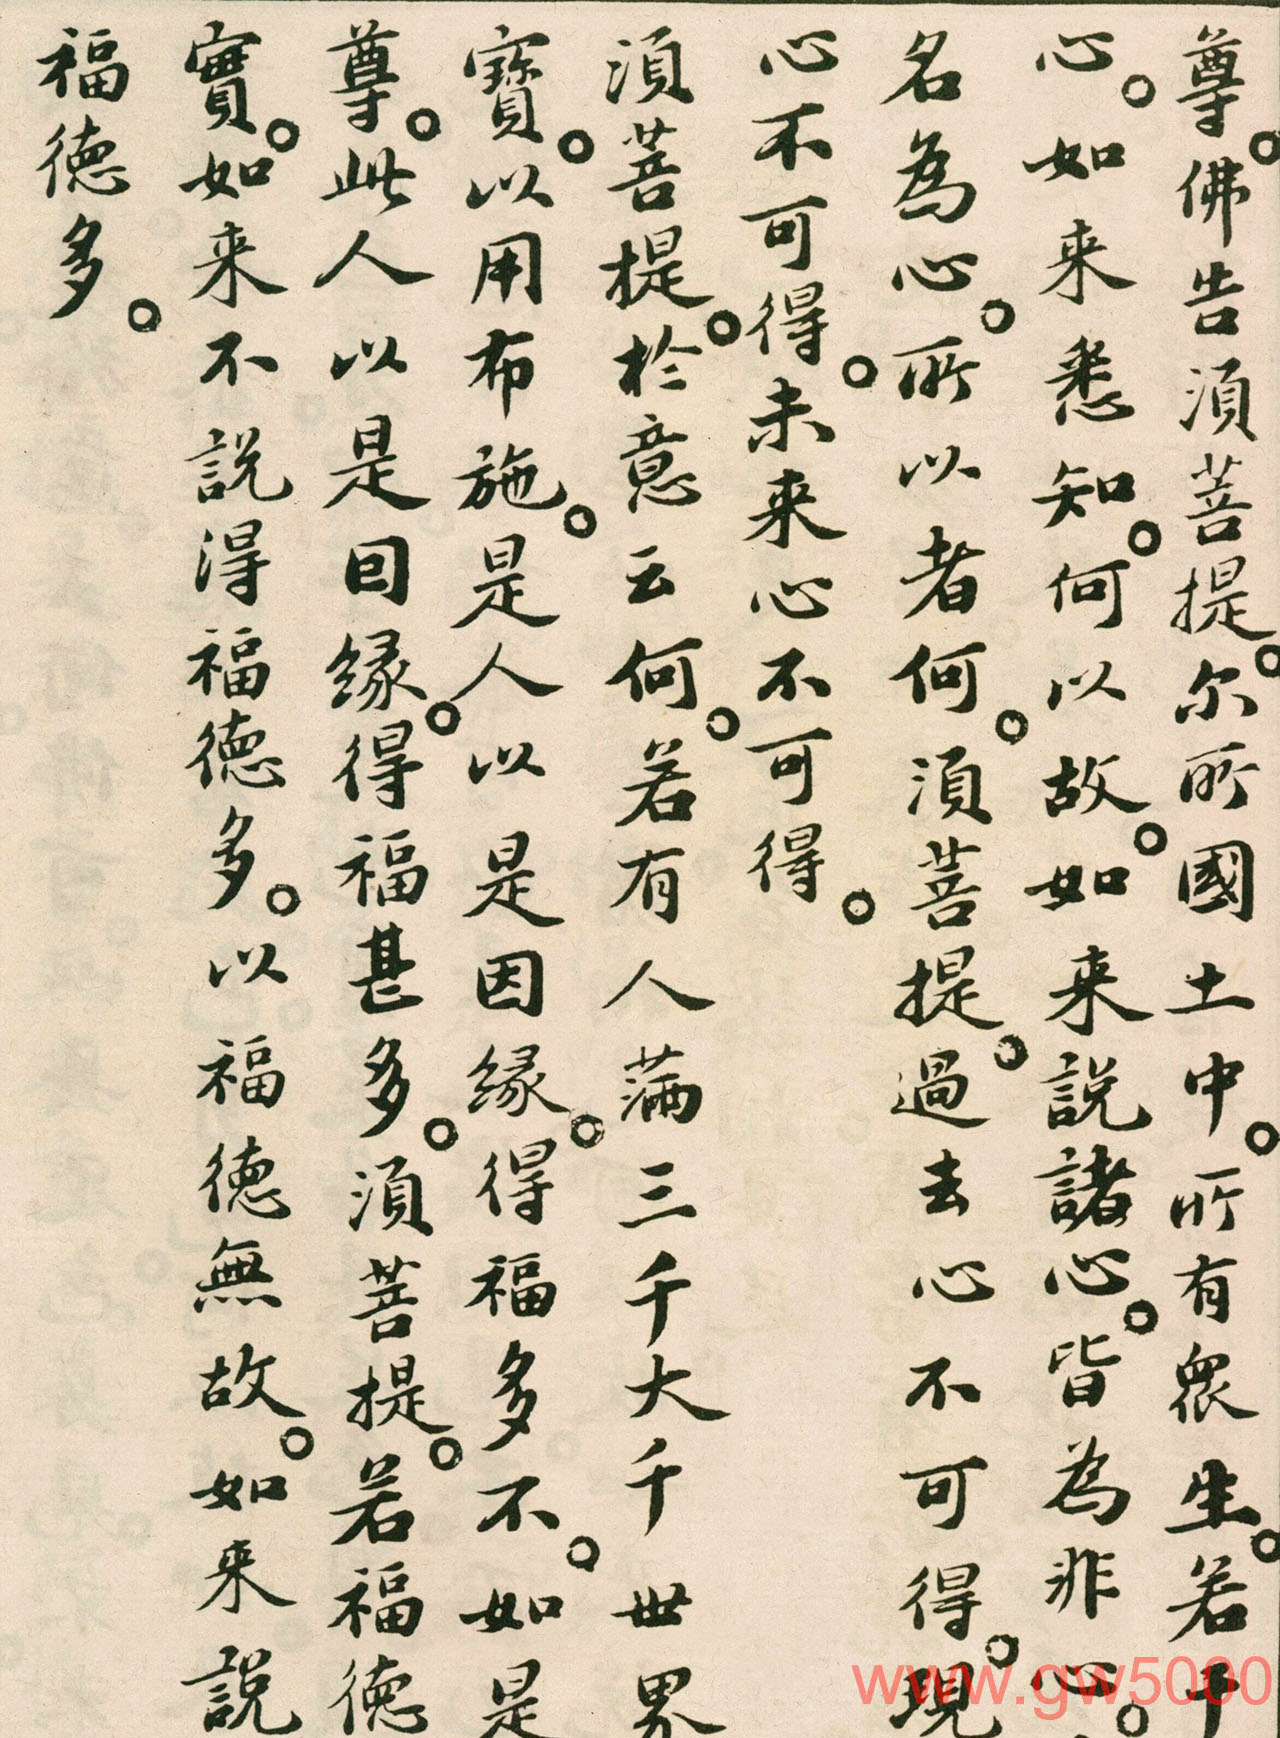 尊。佛告須菩提。尔所國土中。所有眾生。若干
心。如来悉知。何以故。如来說諸心。皆為非心。
名為心。所以者何。須菩提。過去心不可得。現
心不可得。未来心不可得。
須菩提。於意云何。若有人滿三千大千世界
寶。以用布施。是人以是因緣。得福多不。如是
尊。此人以是因緣。得福甚多。須菩提。若福德
實。如来不說得福德多。以福德無故。如来說
福德多。
www.gw5000